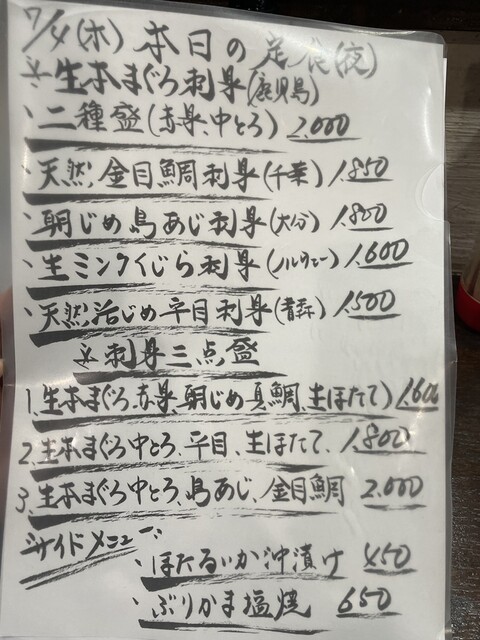 7/4(木) 本日の定食(夜)
☆生本まぐろ刺身(鹿児島)
、二種盛(赤身、中とろ) 2,000
、天然金目鯛刺身(千葉) 1,850
、朝じめ島あじ刺身(大分) 1,800
、生ミンククじら刺身(ノルウェー) 1,600
、天然活じめ平目刺身(青森) 1,500
☆刺身三点盛
1、生本まぐろ赤身、朝じめ真鯛、生ほたて) 1,600
2、生本まぐろ中とろ、平目、生ほたて、 1,800
3、生本まぐろ中とろ、島あじ、金目鯛 2,000
サイドメニュー
、ほたるいか沖漬け 450
、ぶりかま塩焼 650